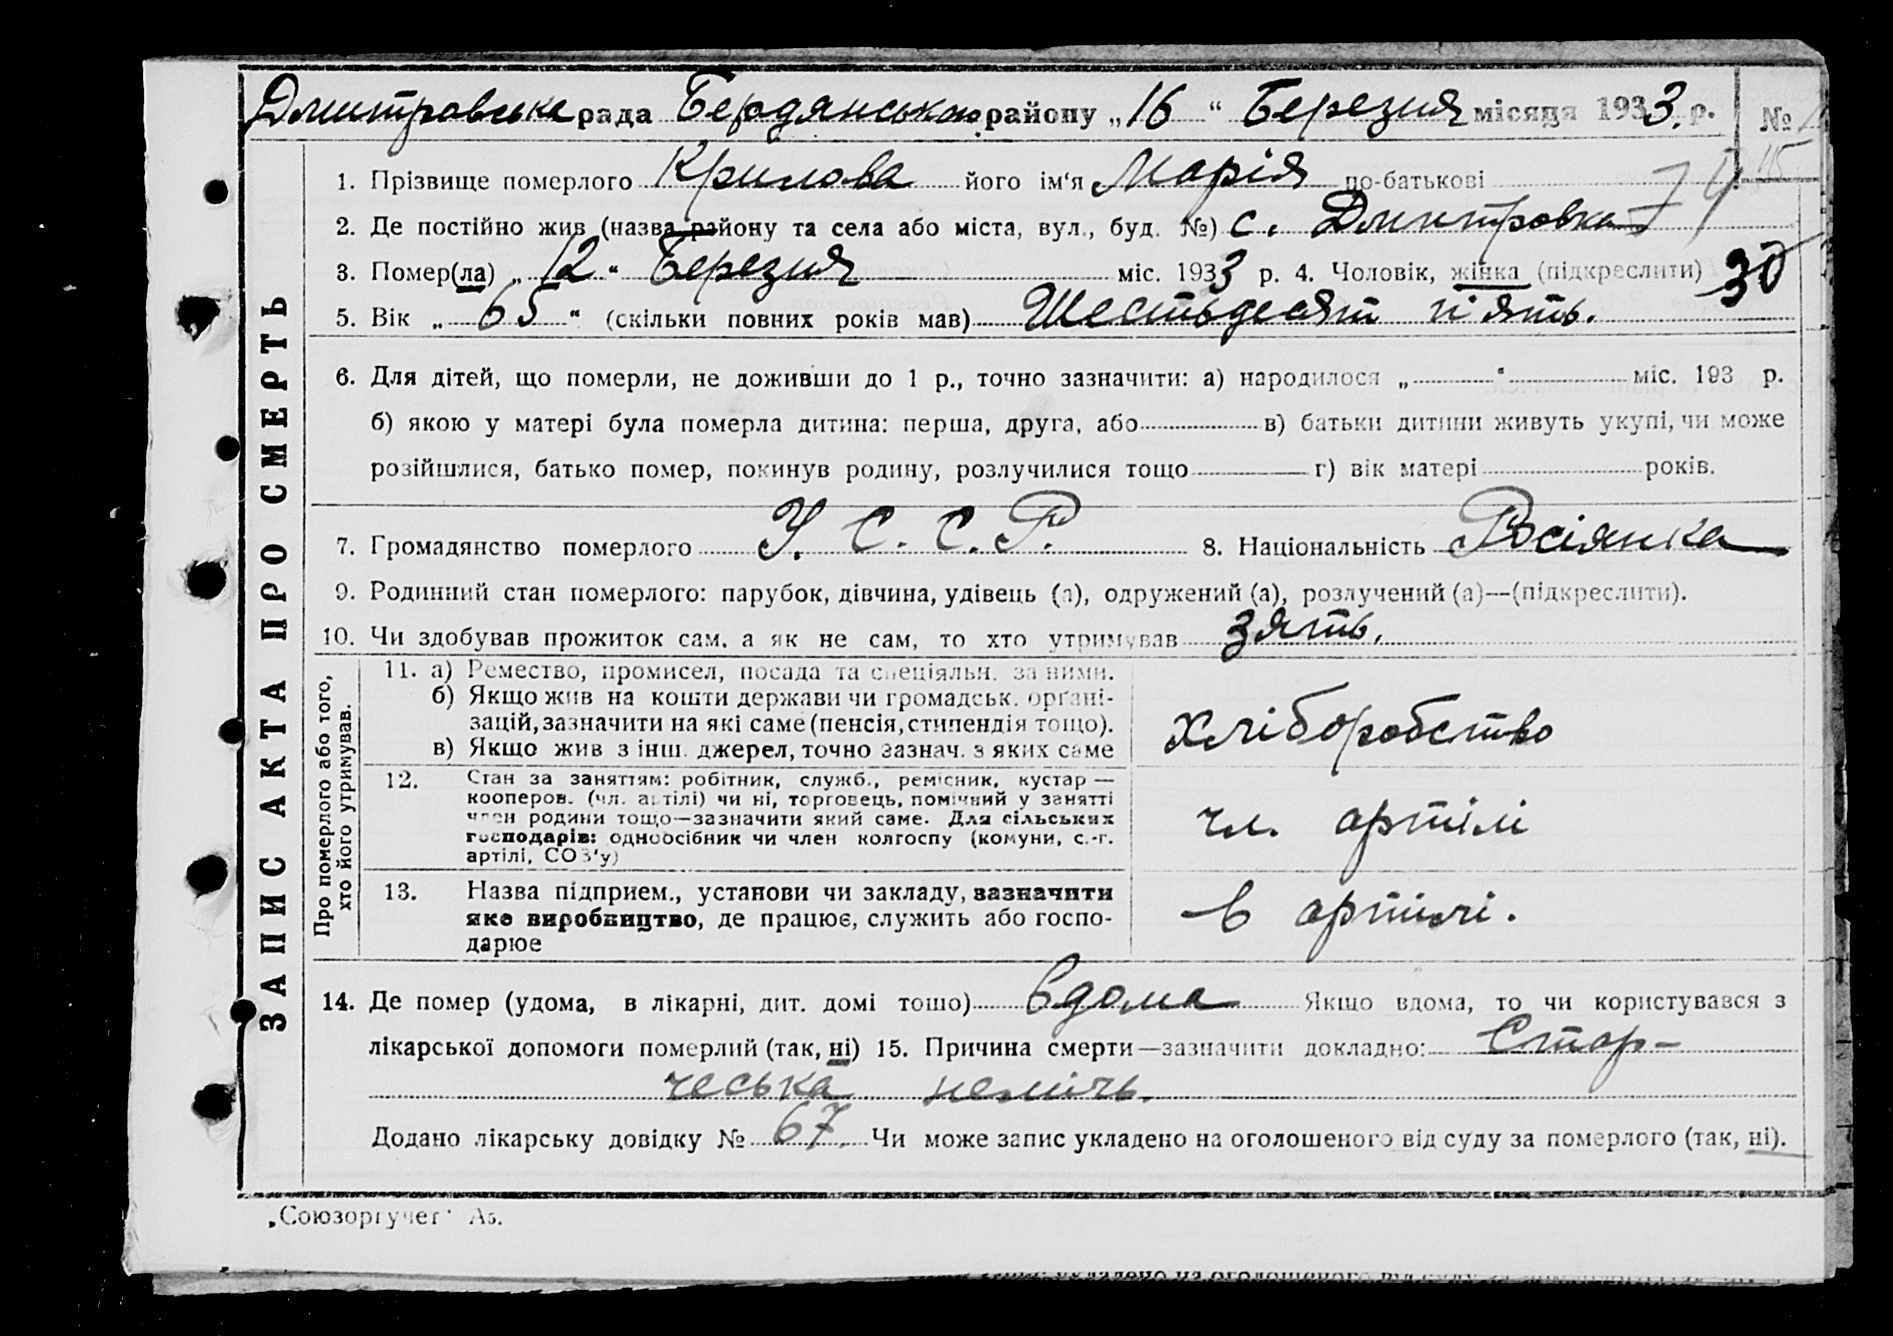 Дмитровська рада Бердянською району „16“ Березня місяця 1933. р. №
1. Прізвище померлого Крилова його ім'я Марія по-батькові
2. Де постійно жив (назва району та села або міста, вул., буд. №) с. Дмитровка
3. Помер(ла) „12“ Березня міс. 1933 р. 4. Чоловік, жінка (підкреслити) 30
5. Вік „65“ (скільки повних років мав) Шестьдесят п'ять.
6. Для дітей, що померли, не доживши до 1 р., точно зазначити: а) народилося „ “ міс. 193 р.
б) якою у матері була померла дитина: перша, друга, або в) батьки дитини живуть укупі, чи може
розійшлися, батько помер, покинув родину, розлучилися тощо г) вік матері років.
7. Громадянство померлого У. С. С. Р. 8. Національність Росіянка
9. Родинний стан померлого: парубок, дівчина, удівець (а), одружений (а), розлучений (а)—(підкреслити).
10. Чи здобував прожиток сам, а як не сам, то хто утримував зять.
ЗАПИС АКТА ПРО СМЕРТЬ
Про померлого або того,
хто його утримував.
11. а) Ремество, промисел, посада та спеціяльн. за ними.
б) Якщо жив на кошти держави чи громадськ. органі-
зацій, зазначити на які саме (пенсія, стипендія тощо).
в) Якщо жив з інш. джерел, точно зазнач. з яких саме
хліборобство
12. Стан за заняттям: робітник, служб., ремісник, кустар —
кооперов. (чл. артілі) чи ні, торговець, помічний у занятті
член родини тощо—зазначити який саме. Для сільських
господарів: одноосібник чи член колгоспу (комуни, с.-г.
артілі, СОЗ'у)
чл. артілі
13. Назва підприєм., установи чи закладу, зазначити
яке виробництво, де працює, служить або госпо-
дарює
в артілі.
14. Де помер (удома, в лікарні, дит. домі тощо) Вдома Якщо вдома, то чи користувався з
лікарської допомоги померлий (так, ні) 15. Причина смерти—зазначити докладно: Стар-
чеська неміч.
Додано лікарську довідку № 67. Чи може запис укладено на оголошеного від суду за померлого (так, ні).
„Союзоргучет“ Аз.